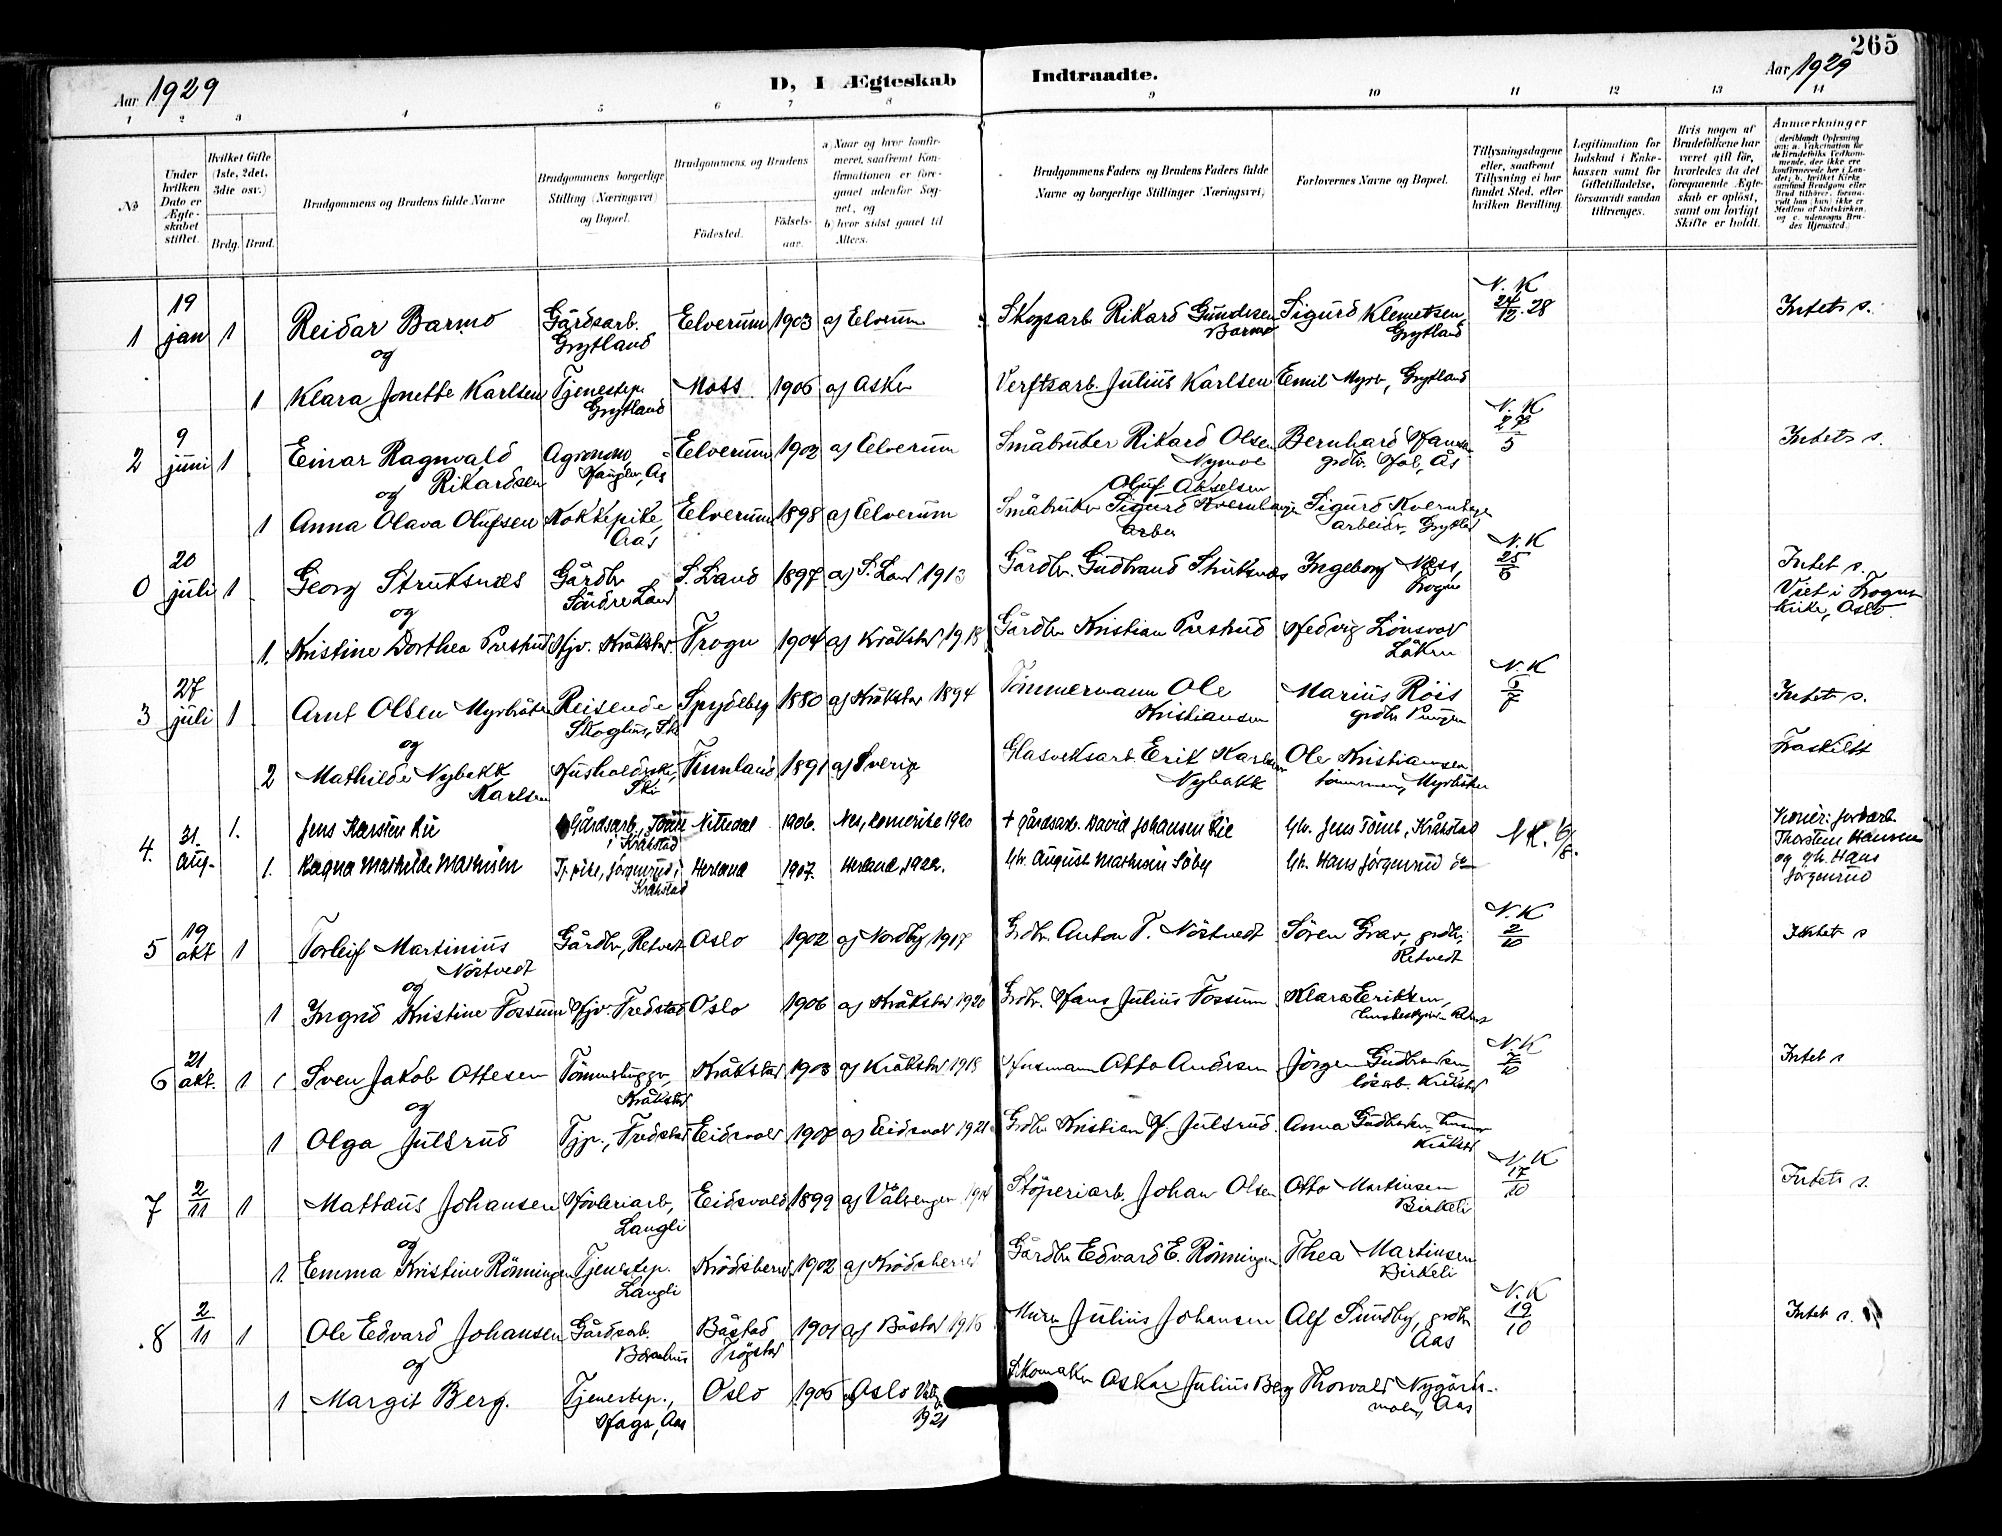 265
Aar 1929
D, I Ægteskab
Indtraadte.
Aar 1929
1 2 3 4 5 6 7 8 9 10 11 12 13 14
No
Under hvilken Dato er Ægteskabet stiftet.
Hvilket Gifte (1ste, 2det, 3die osv.)
Brdg. Brud.
Brudgommens og Brudens fulde Navne
Brudgommens borgerlige Stilling (Næringsvei) og Bopæl.
Brudgommens og Brudens
Födested.
Födselsaar.
a) Naar og hvor konfirmeret, saafremt Konfirmationen er foregaaet udenfor Sognet, og
b) hvor sidst gaaet til Alters.
Brudgommens Faders og Brudens Faders fulde Navne og borgerlige Stillinger (Næringsvei)
Forlovernes Navne og Bopæl.
Tillysningsdagene eller, saafremt Tillysning ei har fundet Sted, efter hvilken Bevilling.
Legitimation for Indskud i Enkekassen samt for Giftetilladelse, forsaavidt saadan tiltrænges.
Hvis nogen af Brudefolkene har været gift för, hvorledes da det foregaaende Ægteskab er oplöst, samt om lovligt Skifte er holdt.
Anmærkninger
1 19 jan 1 Reidar Barmo Gårdsarb. Grytland Elverum 1903 aj Elverum Skogsarb Rikard Gundersen Barmo Sigurd Klemetsen Grytland N.K 24/12.28 Intet s.
og
1 Klara Jonette Karlsen Tjenestep. Grytland Moss 1906 aj Asker Verftsarb. Julius Karlsen Emil Myrv, Grytland
2 9 juni 1 Einar Ragnvald Rikardsen Agronom Elverum 1902 aj Elverum Småbruker Rikard Olsen Nymoe Bernhard Hansen grdbr. Hol, Ås N.K 27/5 Intet s.
og
1 Anna Olava Olufsen Kokkepike, Aas Elverum 1898 aj Elverum Oluf Akselsen Småbruker Sigurd Kvernhauge Sigurd Kvernhauge arbeider, Grytland
0 20 juli 1 Georg Struksnæs Gårdbr Söndre Land S. Land 1897 aj S. Land 1913 Gårdbr. Gudbrand Struksnæs Ingeborg Næss, Frogn N.K 25/6 Intet s. Viet i Frogner kirke, Oslo.
og
1. Kristine Dorthea Prestrud Hjv. Kråkstad Frogn 1904 aj Kråkstad 1918 Gårdbr Kristian Prestrud Hedvig
3 27 juli 1 Arnt Olsen Myrbråten Reisende Spydeberg 1880 aj Kråkstad 1894 Tömmermann Ole Kristiansen Marius Röis grdbr N.K 5/7 Intet s.
og
2 Mathilde Nybakk Karlsen Husholderske, Ski Finnland 1891 aj Sverige Glasverksarb Erik Karlsen Nybakk Ole Kristiansen tömmerm, Myrbråten Fraskilt
4. 31. Aug. 1. Jens Karsten Lie Gårdsarb, Tömte i Kråkstad Nittedal 1906. Nes, Romerike 1920 + gårdsarb. David Johansen Lie Gbr. Jens Tömt, Kråkstad N.K. 6/8.
1. Ragna Mathilde Mathisen Tj. pike, Jörgenrud i Kråkstad Herland 1907. Herland, 1922. Gbr. August Mathisen Söby Gbr. Hans Jörgenrud do
Thorstein Hansen og gbr. Hans Jörgenrud
5 19 okt 1 Torleif Martinius Nöstvedt Gårdbr, Retvedt Oslo 1902 aj Nordby 1917 Grdbr. Anton T. Nöstvedt Sören Grav, grdbr, Retvedt N.K 2/10 Intet s
og
1 Ingrid Kristine Fossum Hjv. Tredstad Oslo 1906 aj Kråkstad 1920 Grdbr. Hans Julius Fossum Klara Eriksen,
6 21 okt. 1 Sven Jakob Ottesen Tömmerhugger, Kråkstad Kråkstad 1903 aj Kråkstad 1918 Husmann Otto Andersen Jörgen Gudbrandsen lösarb. Kråkstad N.K 7/10 Intet s
og
1 Olga Julsrud Tjp., Tredstad Eidsvold 1907 aj Eidsvold 1921 Grdbr Kristian H. Julsrud. Anna Gudbrandsen Kråkstad
7 2/11 1 Mattæus Johansen Hövleriarb, Langli Eidsvold 1899 aj Vålerengen 1914 Stöperiarb. Johan Olsen Otto Martinsen Birkeli N.K 17/10 Intet s.
og
1. Emma Kristine Rönningen Tjenestep. Langli Krödsherred 1902 aj Krödsherred Gårdbr Edvard E. Rönningen Thea Martinsen Birkeli
8 2/11 1 Ole Edvard Johansen Gårdsarb. Båstad Trögstad 1901 aj Båstad 1916 Murer Julius Johansen Alf Sundby, grdbr Aas N.K 19/10 Intet s.
og
1 Margit Berg. Tjenestep., Haga, Aas Oslo 1906 Oslo 1921 Skomaker Oskar Julius Berg Thorvald Aas